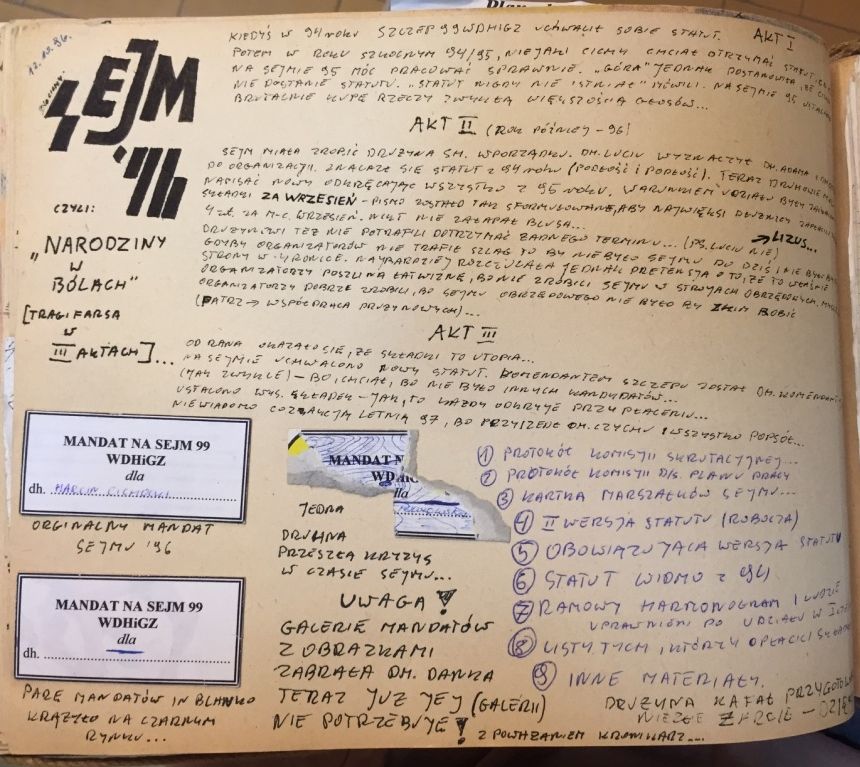 12.10.96.
SEJM
'96
CZYLI:
„NARODZINY
W
BÓLACH"
[TRAGIFARSA
W
III AKTACH]...
AKT I
KIEDYŚ W 94 ROKU SZCZEP 99 WDHIGZ UCHWALIŁ SOBIE STATUT.
POTEM W ROKU SZKOLNYM 94/95, NIEJAKI CICHY CHCIAŁ OTRZYMAĆ STATUT,
NA SEJMIE 95 MÓC PRACOWAĆ SPRAWNIE. „GÓRA" JEDNAK POSTANOWIŁA, ŻE
NIE DOSTANIE STATUTU. „STATUT NIGDY NIE ISTNIAŁ" MÓWILI. NA SEJMIE 95
BRUTALNIE KUPĘ RZECZY ZWYKŁĄ WIĘKSZOŚCIĄ GŁOSÓW...
AKT II (ROK PÓŹNIEJ - 96)
SEJM MIAŁA ZROBIĆ DRUŻYNA SŁ. W PORZĄDKU. DH. LUCIU WYZNACZYŁ DH. ADAMA I
DO ORGANIZACJI. ZNALAZŁ SIĘ STATUT Z 94 ROKU (PODŁOŚĆ I PODŁOŚĆ). TERAZ DRUHOWIE
NAPISAĆ NOWY ODKRĘCAJĄC WSZYSTKO Z 95 ROKU. WARUNKIEM UDZIAŁU BYŁY
SKŁADKI ZA WRZESIEŃ - PISMO ZOSTAŁO TAK SFORMUŁOWANE, ABY NAJWIĘKSI DŁUŻNICY
4 zł. ZA M-C. WRZESIEŃ. NIKT NIE ZAŁAPAŁ BLUSA...
DRUŻYNOWI TEŻ NIE POTRAFILI DOTRZYMAĆ ŻADNEGO TERMINU... (PS. LUCIU NIE) → LIZUS...
GDYBY ORGANIZATORÓW NIE TRAFIŁ SZLAG TO BY NIE BYŁO SEJMU DO DZIŚ I NIE BYŁO BY
STRONY W KRONICE. NAJBARDZIEJ ROZCZULAŁA JEDNAK PRETENSJA O TO, ŻE TO WŁAŚNIE
ORGANIZATORZY POSZLI NA ŁATWIZNĘ, BO NIE ZROBILI SEJMU W STROJACH OBRZĘDOWYCH.
ORGANIZATORZY DOBRZE ZROBILI, BO SEJMU OBRZĘDOWEGO NIE BYŁO BY Z KIM ROBIĆ
(PATRZ → WSPÓŁPRACA DRUŻYNOWYCH)...
AKT III
OD RANA OKAZAŁO SIĘ, ŻE SKŁADKI TO UTOPIA...
NA SEJMIE UCHWALONO NOWY STATUT. KOMENDANTEM SZCZEPU ZOSTAŁ DH. KOMENDANT
(JAK ZWYKLE) - BO CHCIAŁ, BO NIE BYŁO INNYCH KANDYDATÓW...
USTALONO WYS. SKŁADEK - JAK, TO KAŻDY ODKRYJE PRZY PŁACENIU...
NIEWIADOMO CO Z AKCJĄ LETNIĄ 97, BO PRZYSZEDŁ DH. CZYCHU I WSZYSTKO POPSÓŁ...
MANDAT NA SEJM 99
WDHiGZ
dla
dh.
ORGINALNY MANDAT
SEJMU '96
MANDAT NA SEJM 99
WDHiGZ
dla
dh.
PARĘ MANDATÓW IN BLANKO
KRĄŻYŁO NA CZARNYM
RYNKU...
MANDAT N
WDHiG
dla
JEDNA
DRUHNA
PRZESZŁA KRYZYS
W CZASIE SEJMU...
UWAGA!
GALERIĘ MANDATÓW
Z OBRAZKAMI
ZABRAŁA DH. DANKA
TERAZ JUŻ JEJ (GALERII)
NIE POTRZEBUJE!
Z POWAŻANIEM KRONIKARZ...
① PROTOKÓŁ KOMISJI SKRUTACYJNEJ...
② PROTOKÓŁ KOMISJI D/S. PLANU PRACY
③ KARTKA MARSZAŁKÓW SEJMU...
④ II WERSJA STATUTU (ROBOCZA)
⑤ OBOWIĄZUJĄCA WERSJA STATUTU
⑥ STATUT WIDMO Z 94
⑦ RAMOWY HARMONOGRAM I LUDZIE
UPRAWNIENI DO UDZIAŁU W
⑧ LISTY TYCH, KTÓRZY OPŁACILI
⑨ INNE MATERIAŁY.
DRUŻYNA KAFAŁ
NIEZŁE ŻARCIE -